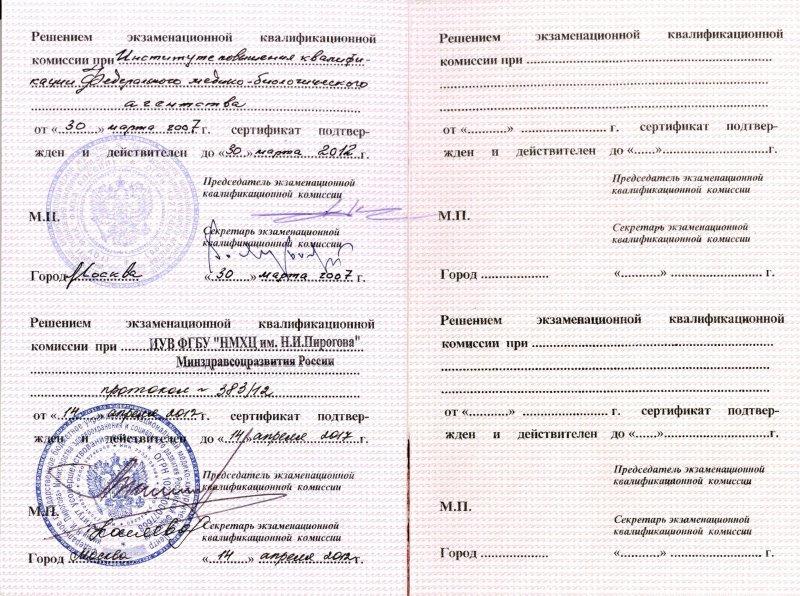 Решением экзаменационной квалификационной
комиссии при Институте повышения квалифи-
кации Федерального медико-биологического
агентства
от «30» марта 2007 г. сертификат подтвер-
жден и действителен до «30» марта 2012 г.
Председатель экзаменационной
квалификационной комиссии
М.П.
Секретарь экзаменационной
квалификационной комиссии
Город Москва «30» марта 2007 г.
Решением экзаменационной квалификационной
комиссии при ИУВ ФГБУ "НМХЦ им. Н.И.Пирогова"
Минздравсоцразвития России
протокол № 383/12
от «14» апреля 2012 г. сертификат подтвер-
жден и действителен до «14» апреля 2017 г.
Председатель экзаменационной
квалификационной комиссии
М.П.
Секретарь экзаменационной
квалификационной комиссии
Город Москва «14» апреля 2012 г.
Решением экзаменационной квалификационной
комиссии при
от «......» г. сертификат подтвер-
жден и действителен до «......» г.
Председатель экзаменационной
квалификационной комиссии
М.П.
Секретарь экзаменационной
квалификационной комиссии
Город «..........» г.
Решением экзаменационной квалификационной
комиссии при
от «..........» г. сертификат подтвер-
жден и действителен до «......» г.
Председатель экзаменационной
квалификационной комиссии
М.П.
Секретарь экзаменационной
квалификационной комиссии
Город «..........» г.